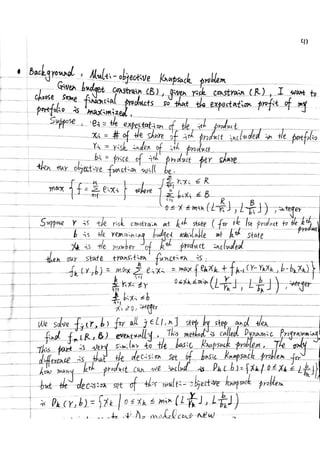 (1)
• Background : Multi-objective Knapsack problem
Given budget constrain (B), given risk constrain (R), I want to
choose some financial products so that the expectation profit of my
portfolio is maximized.
Suppose : ei = the expectation of the ith product
Xi = # of the share of ith product included in the portfolio
ri = risk index of ith product
bi = price of ith product per share
then our objective function will be :
max { f = Σ eiXi } where { Σ riXi ≤ R
Σ biXi ≤ B
0 ≤ X ≤ min (⌊R/ri⌋, ⌊B/bi⌋), integer
Suppose r is the risk constrain at kth state ( for 1st product to the kth product)
b is the remaining budget available at kth state
Xk is the number of kth product included
then our state transition function is :
fk (r, b) = max Σ eiXi = max { ekXk + fk-1 (r-rkXk, b-bkXk) }
Σ riXi ≤ r 0≤Xk≤min (⌊r/rk⌋, ⌊b/bk⌋), integer
Σ biXi ≤ b
Xi ≥ 0, integer
We solve fj (r, b) for all j ∈ [1, n] step by step and then
find fn (R, B) eventually. This method is called Dynamic Programming
This part is very similar to the basic knapsack problem. The only
difference is that the decision set of basic knapsack problem for
how many kth product can we includ is Dk( b) = {Xk | 0 ≤ Xk ≤ ⌊b/bk⌋}
but the decision set of this multi-objective knapsack problem
is Dk (r, b) = {Xk | 0 ≤ Xk ≤ min (⌊r/rk⌋, ⌊b/bk⌋)